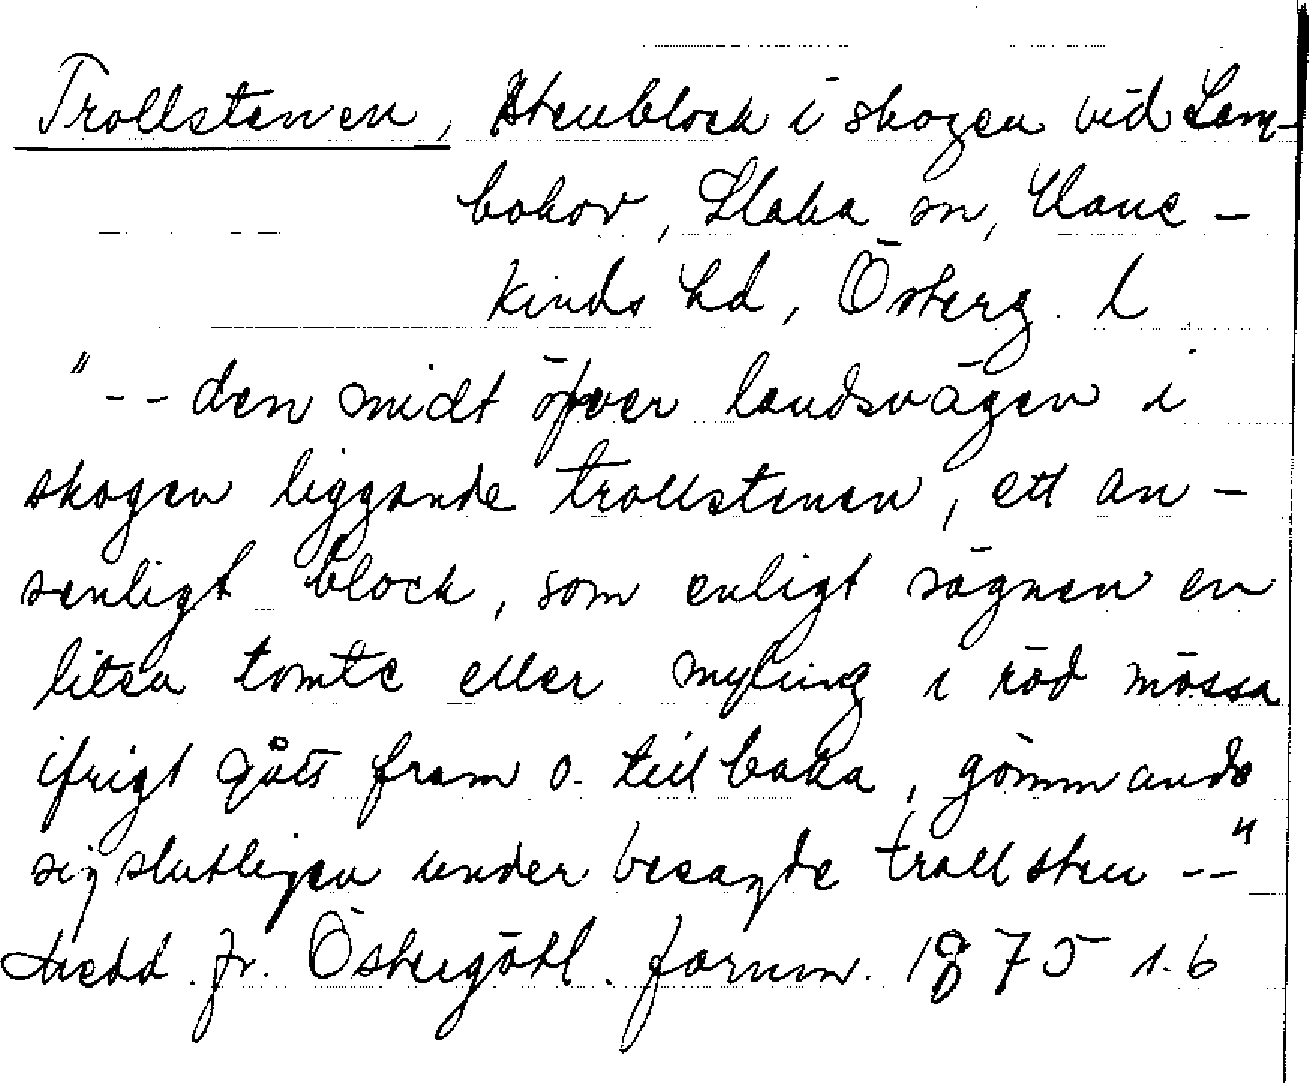 Trollstenen, Stenblock i skogen vid Lam-
bohov, Slaka sn, Hane-
kinds hd, Österg. l
"-- den midt öfver landsvägen i
skogen liggande trollstenen, ett an-
senligt block, som enligt sägnen en
liten tomte eller myling i röd mössa
ifrigt gått fram o. tillbaka, gömmande
sig slutligen under besagde trollsten --"
Medd. fr. Östergötl. fornm. 1875 s. 6